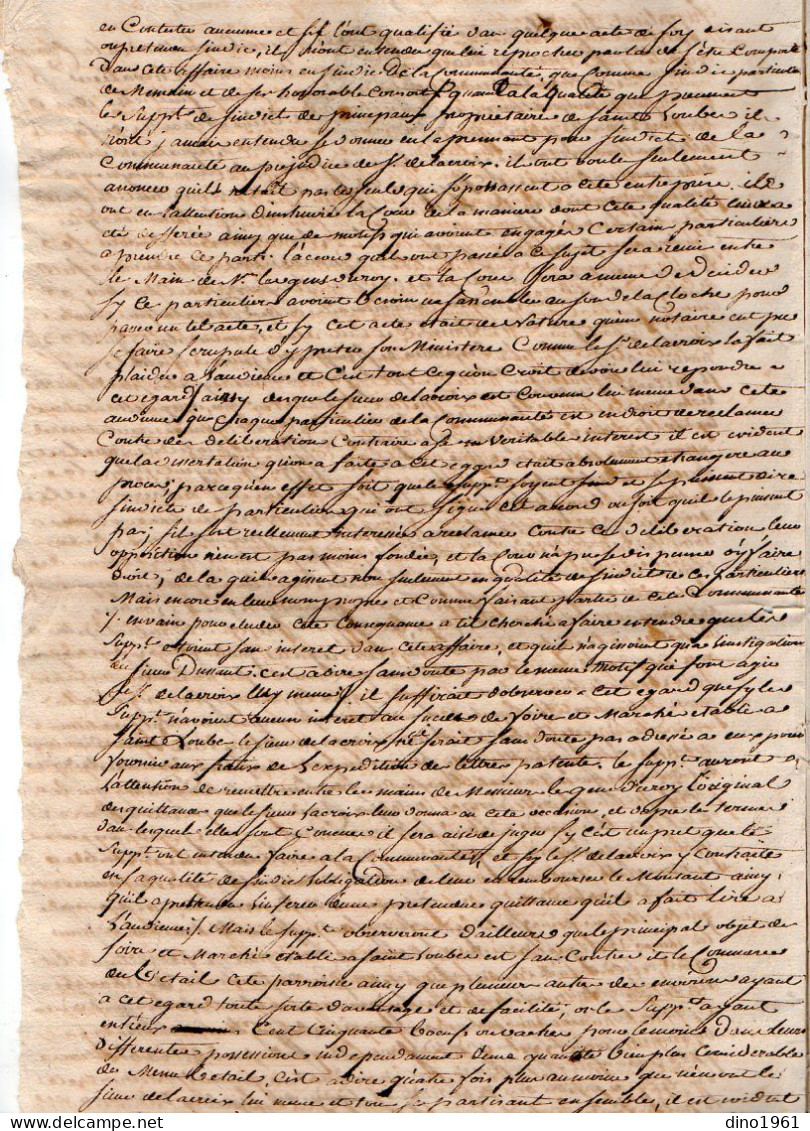 en Contester aucune et s'il l'ont qualifié dans quelque acte de soy disant
ou pretendu sindic, ils n'ont entendu que lui reprocher par la de s'etre Comporté
dans cete affaire moins en sindic De la Communauté, que Comme sindic particulier
de et de ses honorable Consort, quand a la Qualité que prennent
le suppts de sindict de principaux proprietaire de Sainte Loubes il
n'ont jamais entendu se donner en la prennant pour sindict de la
Communauté au prejudice de Sr. delacroix. il ont voulu seulement
anoncer qu'ils n'etoit pas les seuls qui s'opposassent a cete entreprise. ils
ont eu l'attention d'instruire la Cour de la maniere dont cete qualité leur a
eté defferée ainsy que de motifs qui avoient engagés Certain particuliers
a prendre ce parti. l'accord qu'ils ont passé a ce sujet sera remis entre
le Main de Mr. les gens du roy. et la Cour sera a meme de decider
sy ce particuliers avoint besoin de s'assembler au son de la Cloche pour
passer un tel acte, et sy cet acte etoit de Nature qu'un notaire eut pu
se faire scrupule d'y preter son Ministere Comme le Sr. delacroix l'a fait
plaider a l'audience et C'est tout ce qu'on Croit devoir lui repondre a
cet egard daisy des que le sieur delacroix est Convenu lui meme dans cete
audience que Chaque particulier de la Communauté est en droit de reclamer
Contre des deliberation Contraire a son veritable interest il est evident
que la dissertation qu'on a faite a cet eggard etoit absolument etrangere au
proces, parcequ'en effet soit que le suppts soyent sindic et se puissent dire
sindicts de particuliers qui ont signé cet accord ou soit qu'il le puissent
pas, s'il sont reellement interessés a reclamer Contre ce deliberation leur
opposition n'en est pas moins fondée, et la Cour n'a pu se dispenser d'y faire
droit, de la qu'ils agissent non seulement en qualité de sindict de ces particuliers
Mais encore en leur nom propre et Comme faisant partie de cete Communauté
en vain pour eluder cete Consequence a t'il cherché a faire entendre que les
suppts etoient sans interet dans cete affaire, et qu'il n'agissoint qu'a l'instigation
du sieur Dussaut. c'est a dire sans doute par le meme Motif qui font agir
le Sr. delacroix luy meme. il suffiroit d'observer a cet egard que sy les
suppts n'avoint aucun interet au succes de foire et Marché etabli a
Saint Loubes le sieur delacroix ne se seroit sans doute pas adressé a eux pour
fournir aux fraix de l'expedition des lettres patente. le suppts auront
l'attention de remettre entre les mains de Messieurs le gens du roy l'original
des quittance que le sieur Lacroix leur donna en cete occasion, et d'apres le termes
dans lesquel elles sont Concues il sera aisé de juger sy C'est un pret que le
suppts ont entendu faire a la Communauté, et sy le Sr. delacroix y Contracte
en sa qualité de sindict l'obligation de leur en rembourser le Montant ainsy
qu'il a pretendu l'inserer dans une pretendue quittance qu'il a fait lire a
l'audience. Mais le suppts observeront d'ailleurs que le principal objet de
foire et Marché etabli a saint Loubes est sans Contredit le Commerce
du betail cete parroisse ainsy que plusieur autre des environs ayant
a cet egard toute sorte d'avantage et de facilité, or les suppts ayant
entreux Cent Cinquante boeufs ou vaches pour le moins dans leurs
differentes possessions independament d'une quantité bien plus Considerable
de Menu betail, c'est a dire quatre fois plus au moins que n'en ont le
sieur delacroix lui meme et tous ses partisant ensemble, il est evident
dino1961